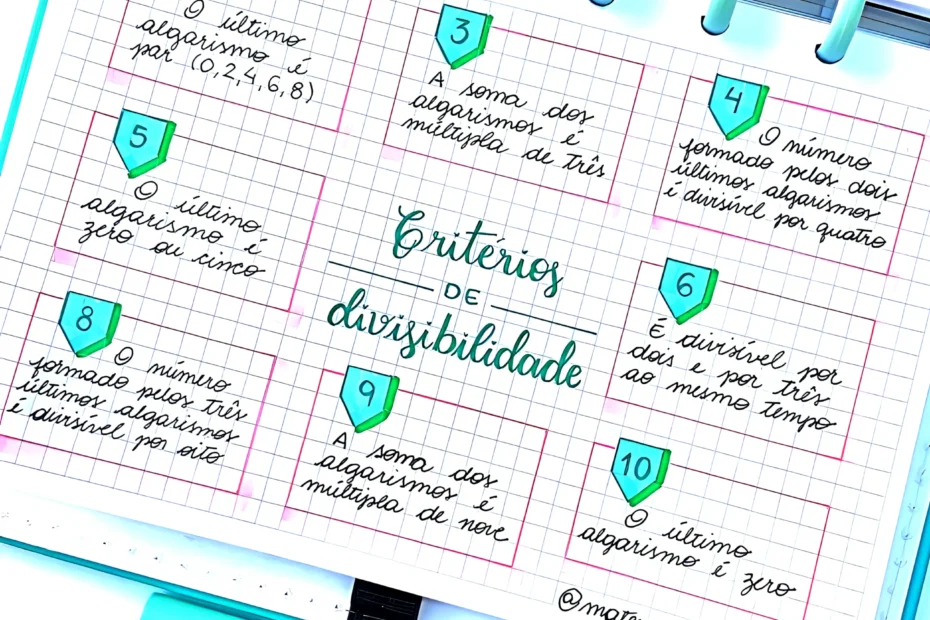 O último
algarismo é
par (0,2,4,6,8)
3
A soma dos
algarismos é
múltipla de três
4
O número
formado pelos dois
últimos algarismos
é divisível por quatro
5
O último
algarismo é
zero ou cinco
Critérios
DE
divisibilidade
6
É divisível por
dois e por três
ao mesmo tempo
8
O número
formado pelos três
últimos algarismos
é divisível por oito
9
A soma dos
algarismos é
múltipla de nove
10
O último
algarismo é zero